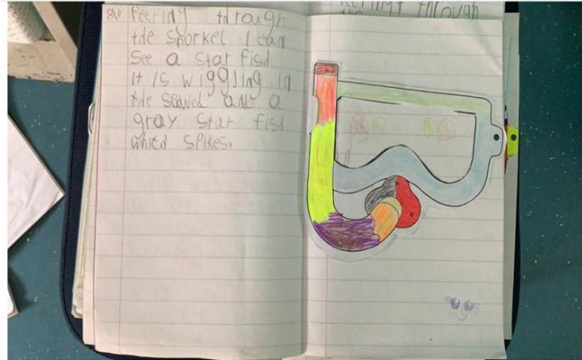 Peering through
the snorkel I can
see a star fish
it is wiggling in
the seawed and a
gray star fish
which spikes.
through